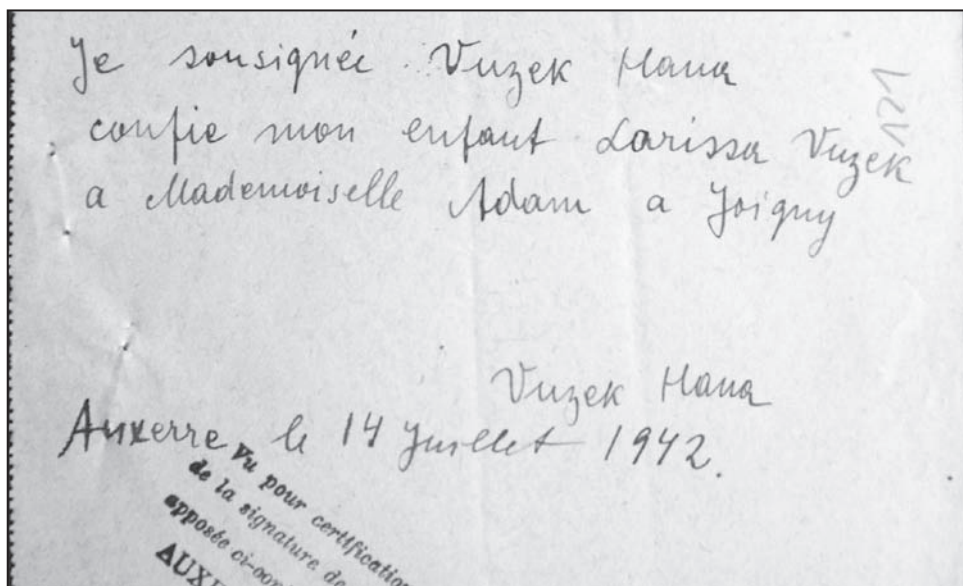 Je sousignée Vuzek Hana
confie mon enfant Larissa Vuzek
a Mademoiselle Adam a Joigny
Vuzek Hana
Auxerre, le 14 Juillet 1942.
Vu pour certification
de la signature de
apposée ci-con
AUXE